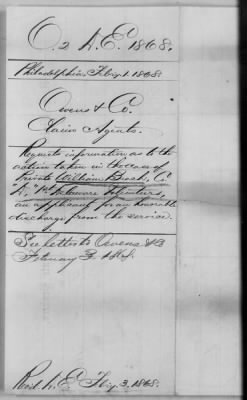 O. 2 A. E. 1868.
Philadelphia, Feby. 1. 1868.
Owens & Co.
Claim Agents.
Requests information as to the
action taken in the case of
Private William Brock, Co
"K" 1st Delaware
an applicant for an honorable
discharge from the service.
See letter to Owens & Co
February 3
Recd. A. E. Feby. 3. 1868.